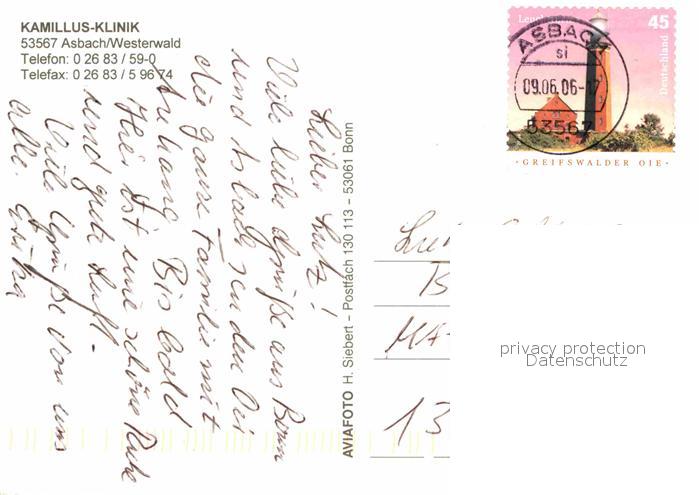 KAMILLUS-KLINIK
53567 Asbach/Westerwald
Telefon: 0 26 83 / 59-0
Telefax: 0 26 83 / 5 96 74
Lieber Lutz!
Viele liebe Grüße aus Bonn
und Asbach senden Dir
die ganze Familie mit
Anhang. Bis bald
Hier ist eine schöne Ruhe
und gute Luft.
Viele Grüße von uns
alle.
AVIAFOTO H. Siebert – Postfach 130 113 – 53061 Bonn
45
Deutschland
GREIFSWALDER OIE
ASBACH
si
09.06.06-17
53567
13
privacy protection
Datenschutz